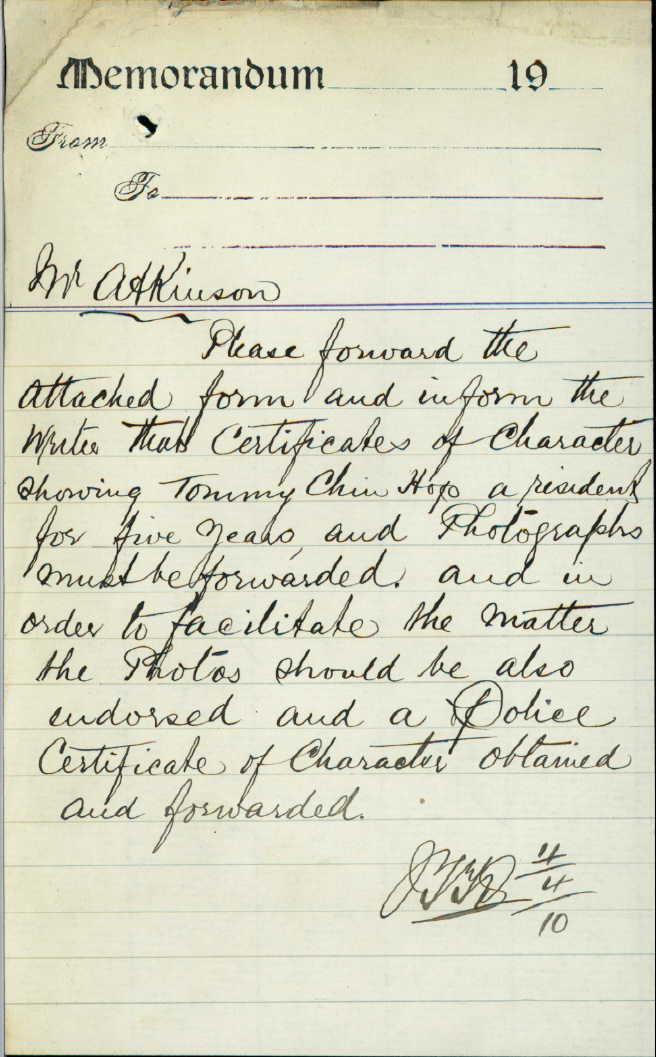 Memorandum 19
From
To
Mr Atkinson
Please forward the
attached form and inform the
writer that Certificates of Character
showing Tommy Chin Hop a resident
for five years, and Photographs
must be forwarded. and in
order to facilitate the matter
the Photos should be also
endorsed and a Police
Certificate of Character obtained
and forwarded.
4/4/10